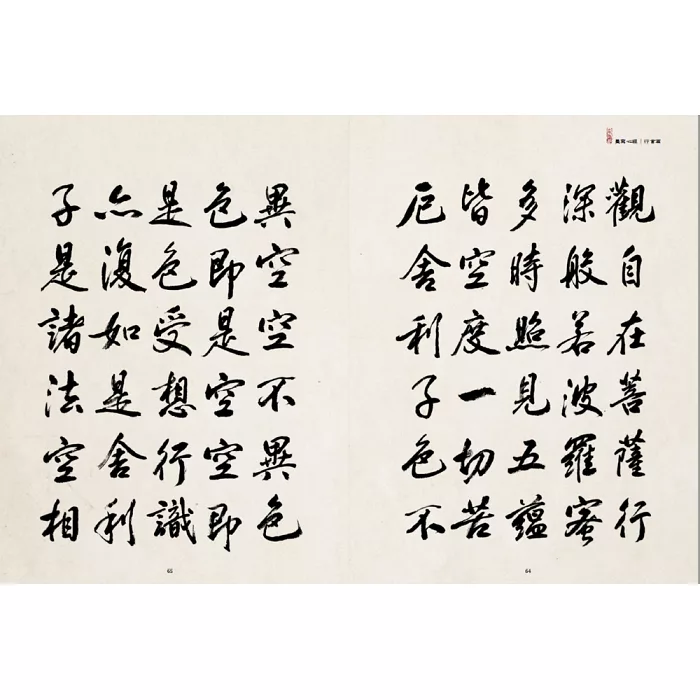 觀自在菩薩行
深般若波羅蜜
多時照見五蘊
皆空度一切苦
厄舍利子色不
64
異空空不異色
色即是空空即
是色受想行識
亦復如是舍利
子是諸法空相
65